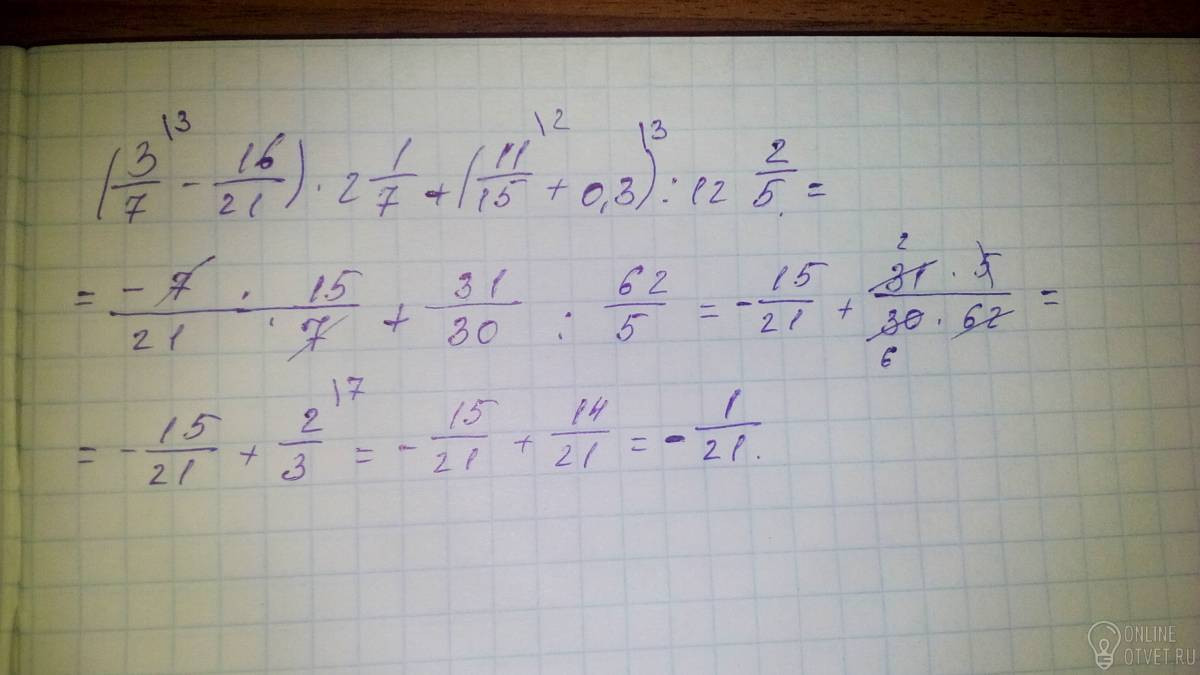 (3/7\3 - 16/21) · 2 1/7 + (11/15\2 + 0,3)\3 : 12 2/5 =
= -7/21 · 15/7 + 31/30 : 62/5 = -15/21 + 2 31 · 5/30 · 62 6 =
= -15/21 + 2/3\7 = -15/21 + 14/21 = -1/21.
ONLINE
OTVET.RU